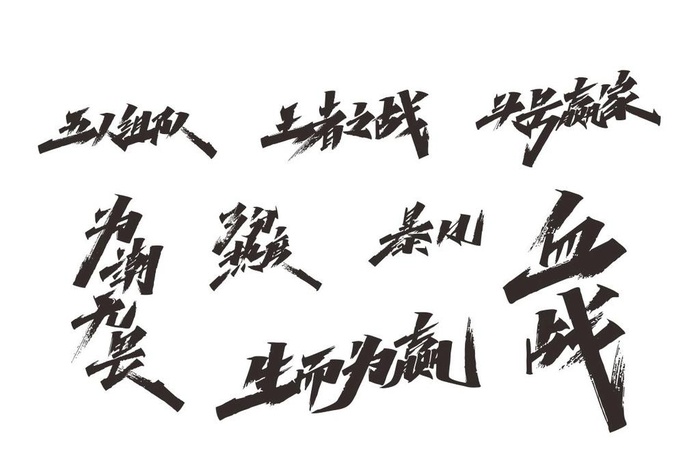 五人组队
王者之战
头号赢家
为潮无畏
分
热度
暴
血战
生而为赢